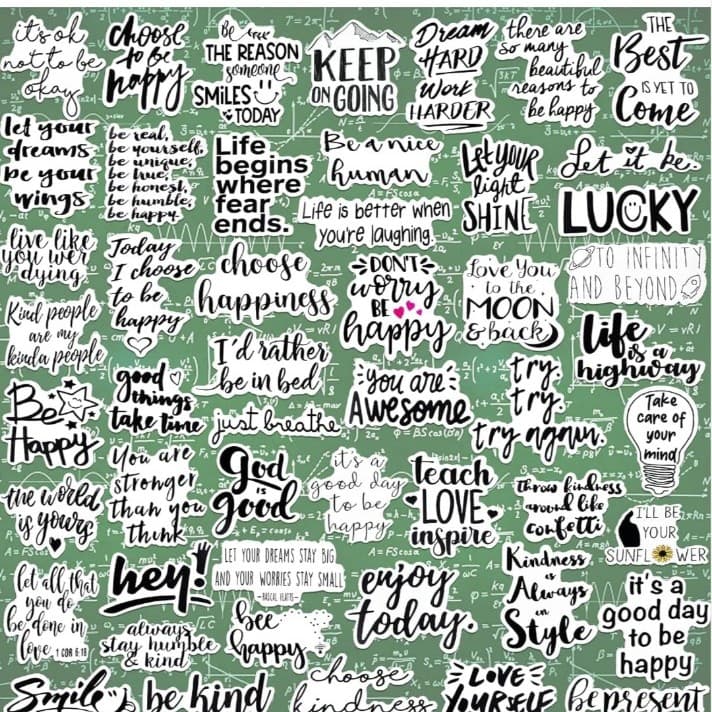 it's ok
not to be
okay
choose
to be
happy
Be the
THE REASON
someone
SMILES
TODAY
KEEP
ON GOING
Dream
HARD
Work
HARDER
there are
so many
beautiful
reasons to
be happy
THE
Best
IS YET TO
Come
let your
dreams
be your
wings
be real,
be yourself,
be unique,
be true,
be honest,
be humble,
be happy.
Life
begins
where
fear
ends.
Be a nice
human
Life is better when
you're laughing.
Let YOUR
light
SHINE
Let it be.
LUCKY
live like
you wer
dying
Today
I choose
to be
happy
choose
happiness
DON'T
worry
BE
happy
Love You
to the
MOON
& back
TO INFINITY
AND BEYOND
Kind people
are my
kinda people
I'd rather
be in bed
life
is a
highway
Be
Happy
good
things
take time
just breathe
you are
Awesome
try.
try.
try again.
Take
care of
your
mind
the world
is yours
You are
stronger
than you
think
God
is
good
it's a
good day
to be
happy
teach
LOVE
inspire
throw kindness
around like
confetti
I'LL BE
YOUR
SUNFLOWER
let all that
you do
be done in
love
1 COR 6:13
hey!
LET YOUR DREAMS STAY BIG
AND YOUR WORRIES STAY SMALL
enjoy
today.
Kindness
is
Always
in
Style
it's a
good day
to be
happy
always
stay humble
& kind
bee
happy
Smile
be kind
choose
kindness
LOVE
YOURSELF
be present